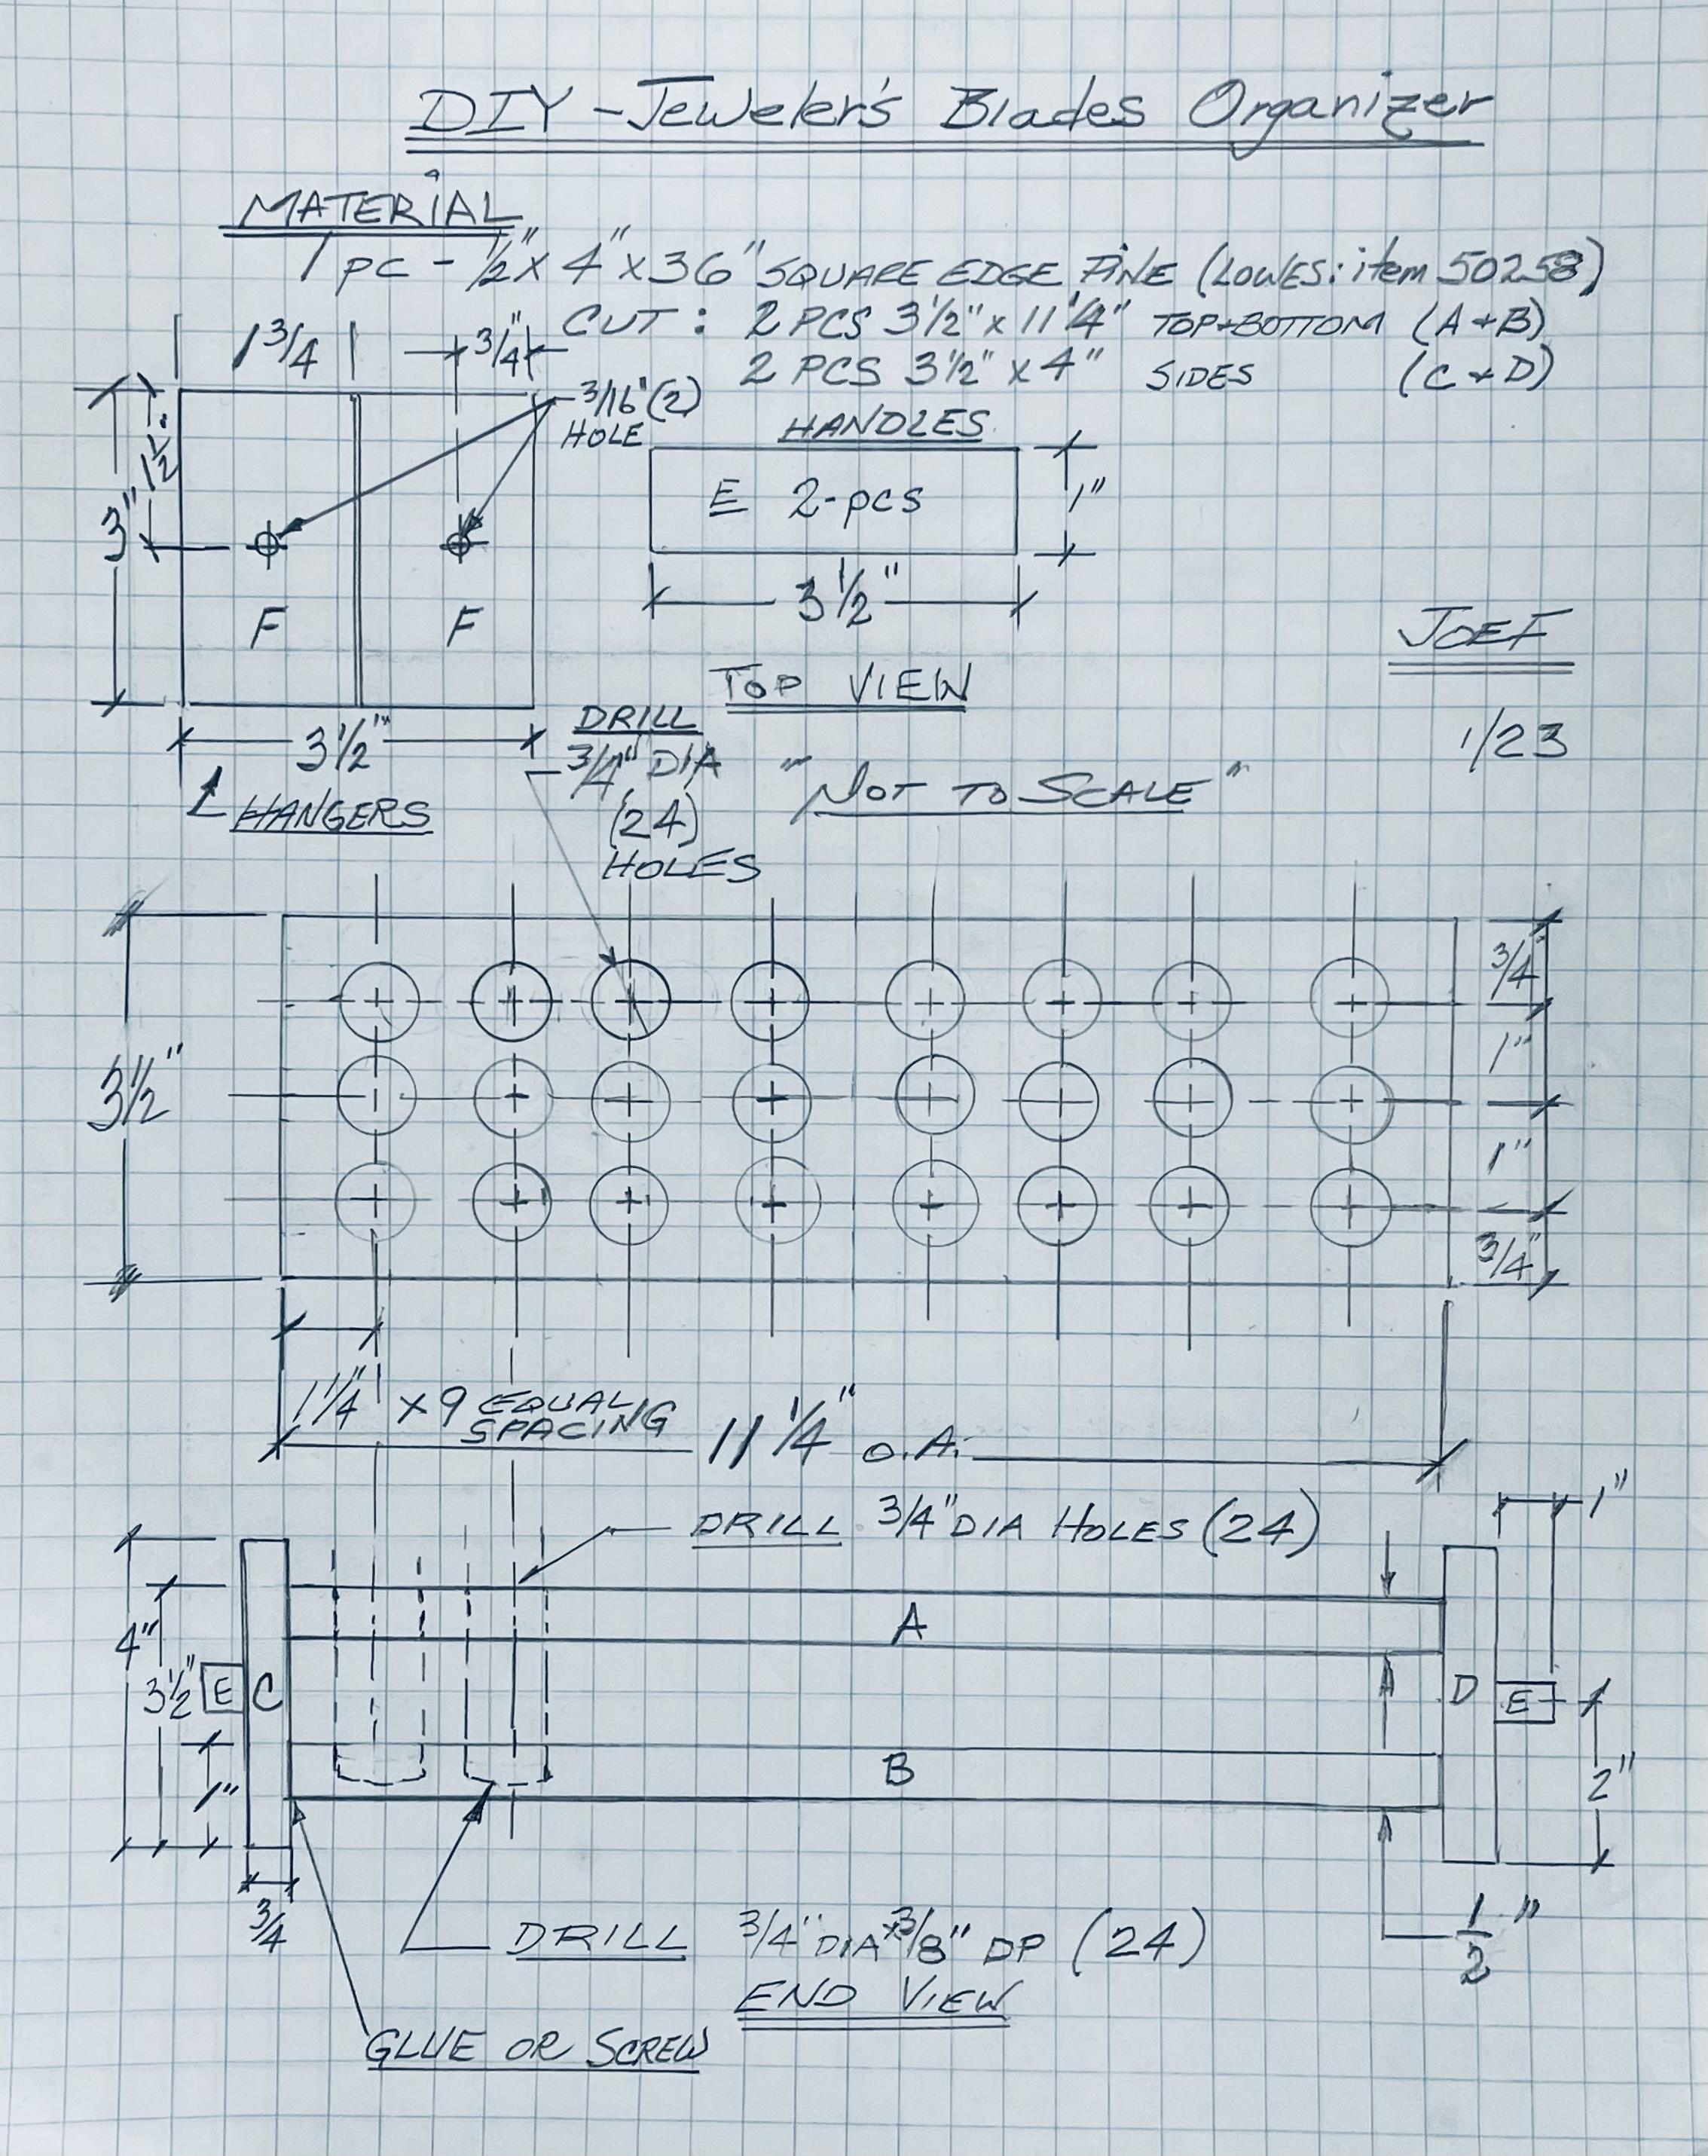 DIY - Jeweler's Blades Organizer
MATERIAL
1 pc - 1/2" x 4" x 36" SQUARE EDGE PINE (LOWES: item 50258)
CUT: 2 PCS 3 1/2" x 11 1/4" TOP + BOTTOM (A + B)
2 PCS 3 1/2" x 4" SIDES (C + D)
1 3/4
3/4"
3/16" (2)
HOLE
1 1/2"
3"
F
F
3 1/2"
HANGERS
HANDLES
E 2-pcs
1"
3 1/2"
JOEF
1/23
TOP VIEW
"NOT TO SCALE"
DRILL
3/4" DIA
(24)
HOLES
3 1/2"
3/4"
1"
1"
3/4"
1 1/4" x 9 EQUAL
SPACING
11 1/4" O.A.
DRILL 3/4" DIA HOLES (24)
1"
4"
3 1/2"
1"
E
C
A
B
D
E
2"
3/4
1/2"
DRILL 3/4" DIA x 3/8" DP (24)
END VIEW
GLUE OR SCREW